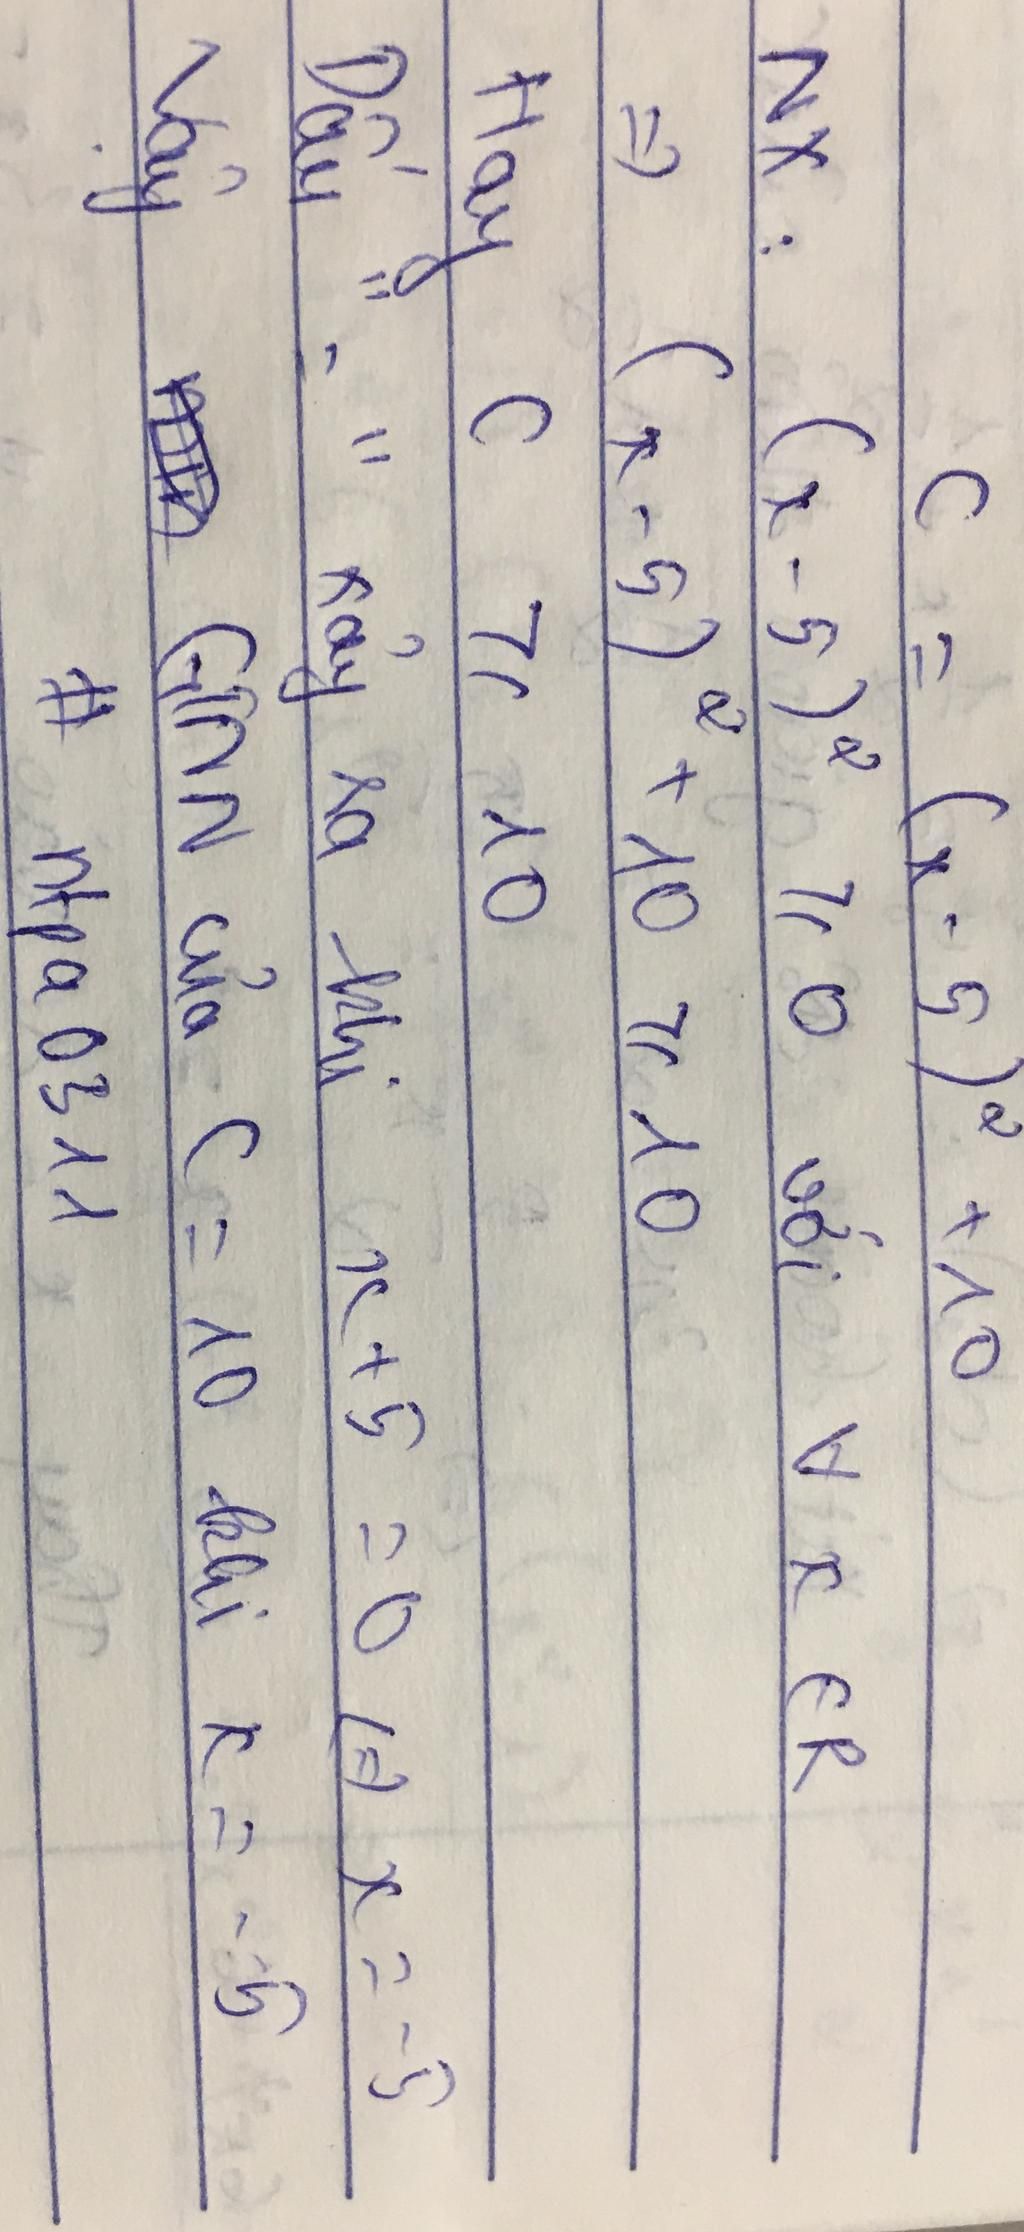 C = (x - 5)² + 10
NX : (x - 5)² ≥ 0 với ∀ x ∈ R
=> (x - 5)² + 10 ≥ 10
Hay C ≥ 10
Dấu "=" xảy ra khi x + 5 = 0 (=) x = -5
Vậy GTNN của C = 10 khi x = -5
# ntpa0311